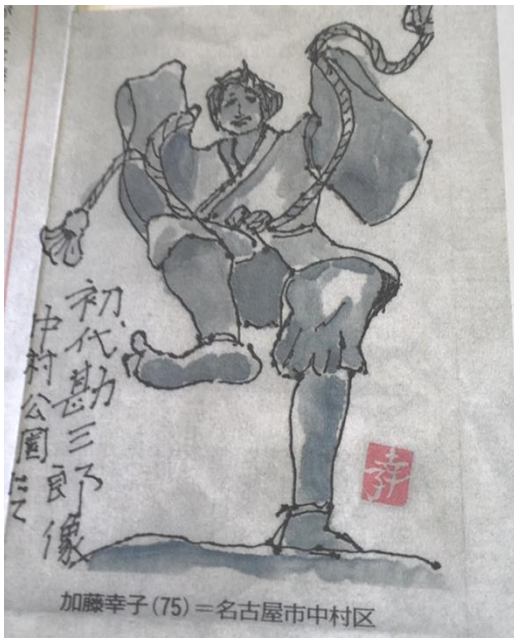 初代勘三郎像
中村公園にて
幸子
加藤幸子(75)=名古屋市中村区